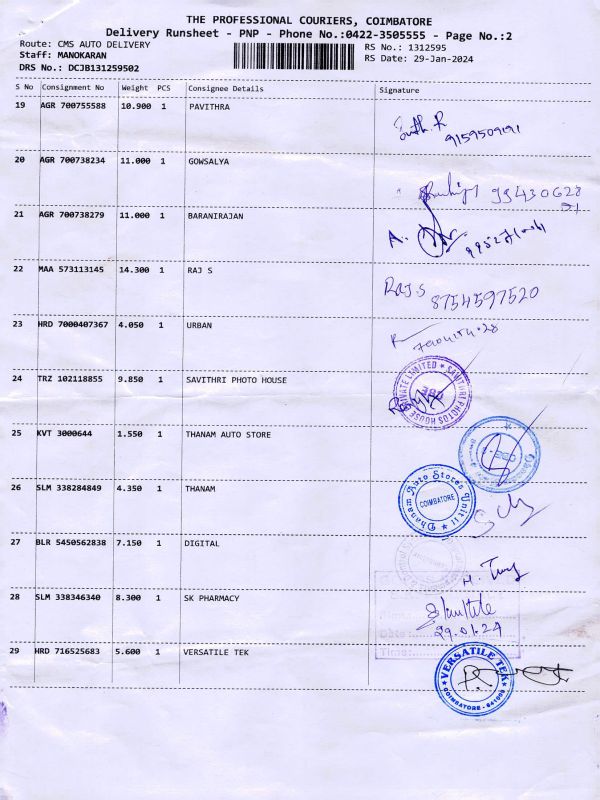 THE PROFESSIONAL COURIERS, COIMBATORE
Delivery Runsheet - PNP - Phone No.:0422-3505555 - Page No.:2
Route: CMS AUTO DELIVERY RS No.: 1312595
Staff: MANOKARAN RS Date: 29-Jan-2024
DRS No.: DCJB131259502
S No Consignment No Weight PCS Consignee Details Signature
19 AGR 700755588 10.900 1 PAVITHRA
9159509191
20 AGR 700738234 11.000 1 GOWSALYA
99430628
21 AGR 700738279 11.000 1 BARANIRAJAN
A.
22 MAA 573113145 14.300 1 RAJ S
RAJ S 8754597520
23 HRD 7000407367 4.050 1 URBAN
24 TRZ 102118855 9.850 1 SAVITHRI PHOTO HOUSE
PRIVATE LIMITED * SAVITHRI PHOTOS HOUSE
25 KVT 3000644 1.550 1 THANAM AUTO STORE
26 SLM 338284849 4.350 1 THANAM
Dhanam Auto Stores Unit II
COIMBATORE
27 BLR 5450562838 7.150 1 DIGITAL
28 SLM 338346340 8.300 1 SK PHARMACY
29.01.24
Time:
29 HRD 716525683 5.600 1 VERSATILE TEK
VERSATILE TEK
COIMBATORE